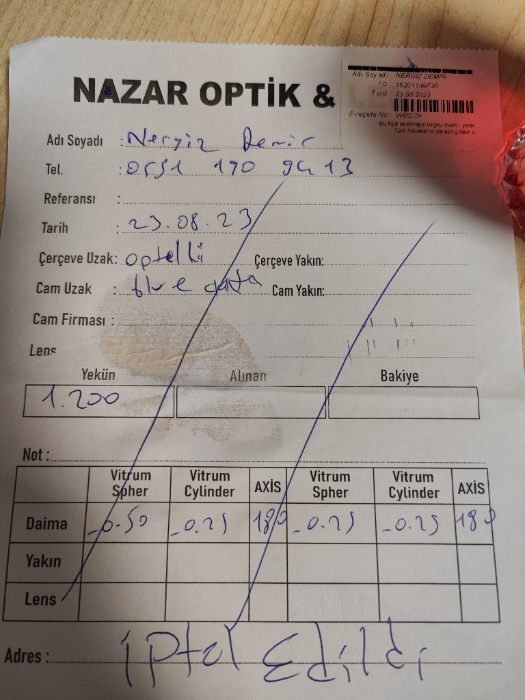 NAZAR OPTİK &
Adı Soyadı : NERGİZ DEMİR
Tarih : 23.08.2023
E-reçete No
Adı Soyadı : Nergiz Demir
Tel. : 0551 190 94 13
Referansı :
Tarih : 23.08.23
Çerçeve Uzak: optelli Çerçeve Yakın:
Cam Uzak : blue Cam Yakın:
Cam Firması :
Lens
Yekün Alınan Bakiye
1.200
Not :
Vitrum Spher Vitrum Cylinder AXİS Vitrum Spher Vitrum Cylinder AXİS
Daima -0.50 -0.25 180 -0.25 -0.25 180
Yakın
Lens
Adres : iptal Edildi